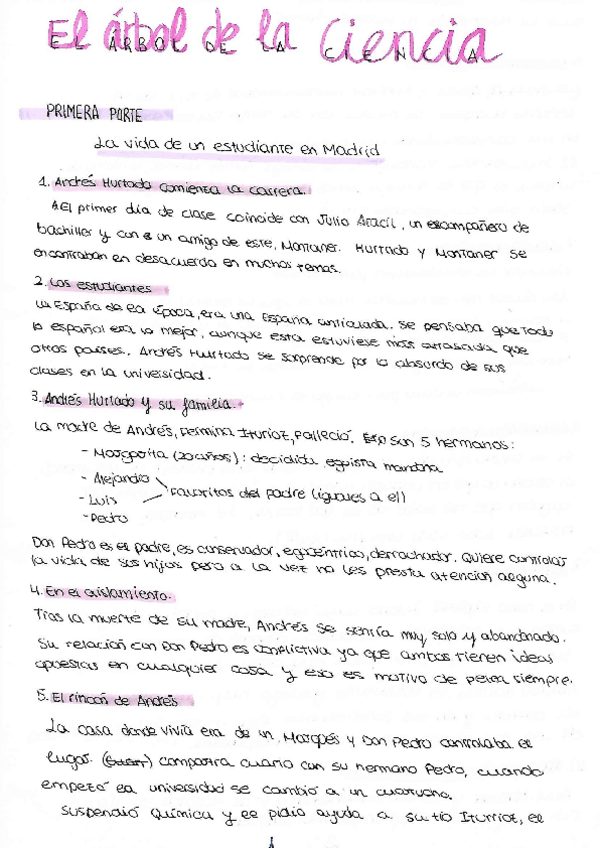 El árbol de la Ciencia
EL ARBOL DE LA CIENCIA
PRIMERA PARTE
La vida de un estudiante en Madrid
1. Andrés Hurtado comienza la carrera.
El primer día de clase coincide con Julio Aracil, un excompañero de
bachiller y con un amigo de este, Montaner. Hurtado y Montaner se
encontraban en desacuerdo en muchos temas.
2. Los estudiantes
La España de la época, era una España anticuada. Se pensaba que todo
lo español era lo mejor, aunque esta estuviese más atrasada que
otros países. Andrés Hurtado se sorprende por lo absurdo de sus
clases en la universidad.
3. Andrés Hurtado y su familia.
La madre de Andrés, Fermina Iturrioz, falleció. Son 5 hermanos:
- Margarita (20 años): decidida, egoista mandona
- Alejandro
- Luis
Favoritos del padre (iguales a el)
- Pedro
Don Pedro es el padre, es conservador, egocéntrico, derrochador. Quiere controlar
la vida de sus hijos pero a la vez no les presta atención alguna.
4. En el aislamiento.
Tras la muerte de su madre, Andrés se sentía muy solo y abandonado.
Su relación con Don Pedro es conflictiva ya que ambos tienen ideas
opuestas en cualquier cosa y eso es motivo de pelea siempre.
5. El rincón de Andrés
La casa donde vivía era de un Marqués y Don Pedro controlaba el
lugar. compartía cuarto con su hermano Pedro, cuando
empezó la universidad se cambió a un cuartucho.
Suspendió Química y le pidio ayuda a su tío Iturrioz, el